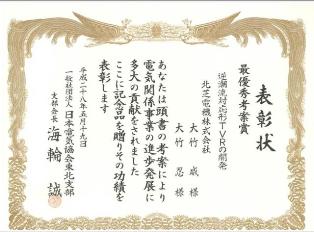 表彰状
最優秀考案賞
逆潮流対応形TVRの開発
北芝電機株式会社
大竹 成様
大竹 忍様
あなたは頭書の考案により
電気関係事業の進歩発展に
多大の貢献をされました
ここに記念品を贈りその功績を
表彰します
平成二十八年五月十九日
一般社団法人日本電気協会東北支部
支部会長 海輪 誠